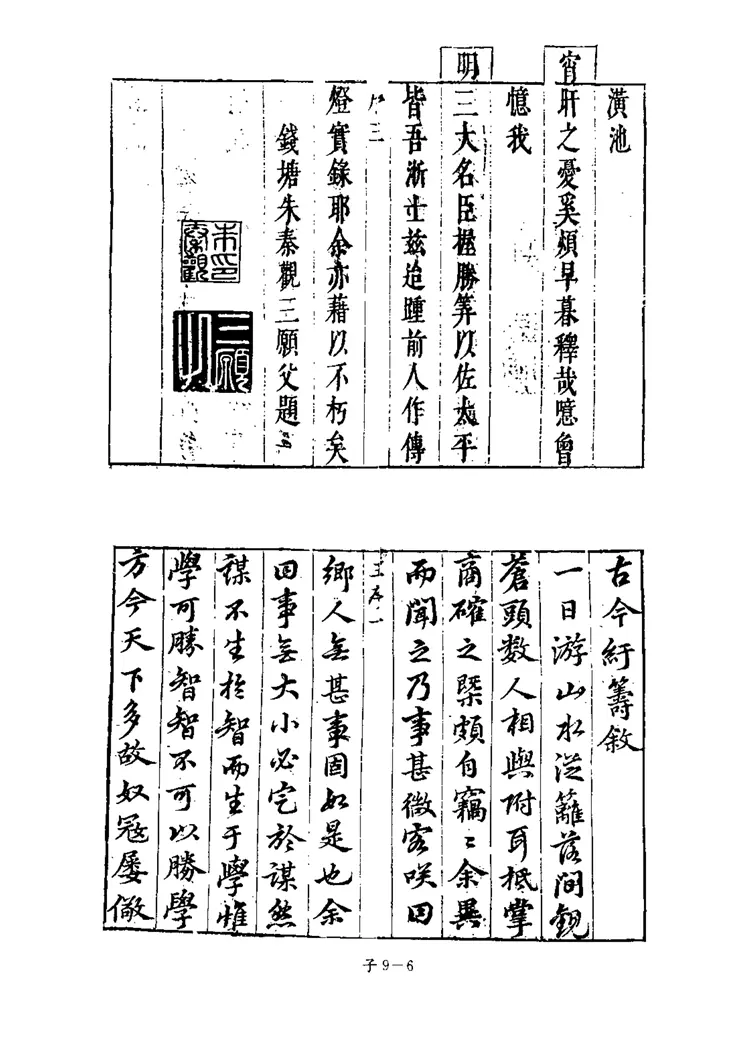 潢池
宵旰之憂奚煩早暮釋哉噫曾
憶我
明三大名臣握勝筭以佐太平
皆吾浙士茲追踵前人作傳
序三
燈實錄耶余亦藉以不朽矣
錢塘朱秦觀三願父題
朱印秦觀
三願父
古今紆籌敘
一日游山水從籬落間觀
蒼頭數人相與附耳抵掌
商確之槩頗自竊〻余異
而聞之乃事甚微客咲曰
王序一
鄉人無甚事固如是也余
曰事無大小必定於謀然
謀不生於智而生于學惟
學可勝智智不可以勝學
方今天下多故奴寇屡儆
子9－6